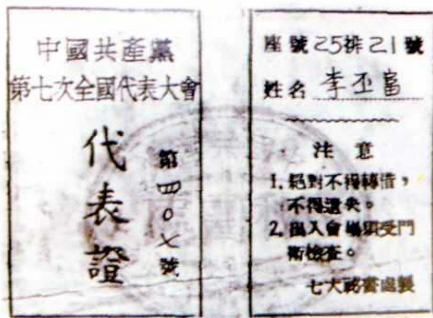 中國共產黨
第七次全國代表大會
代表證
第四〇七號
座號25排21號
姓名 李丕富
注意
1. 絕對不得轉借，
不得遺失。
2. 出入會場須受門
衛檢查。
七大祕書處製